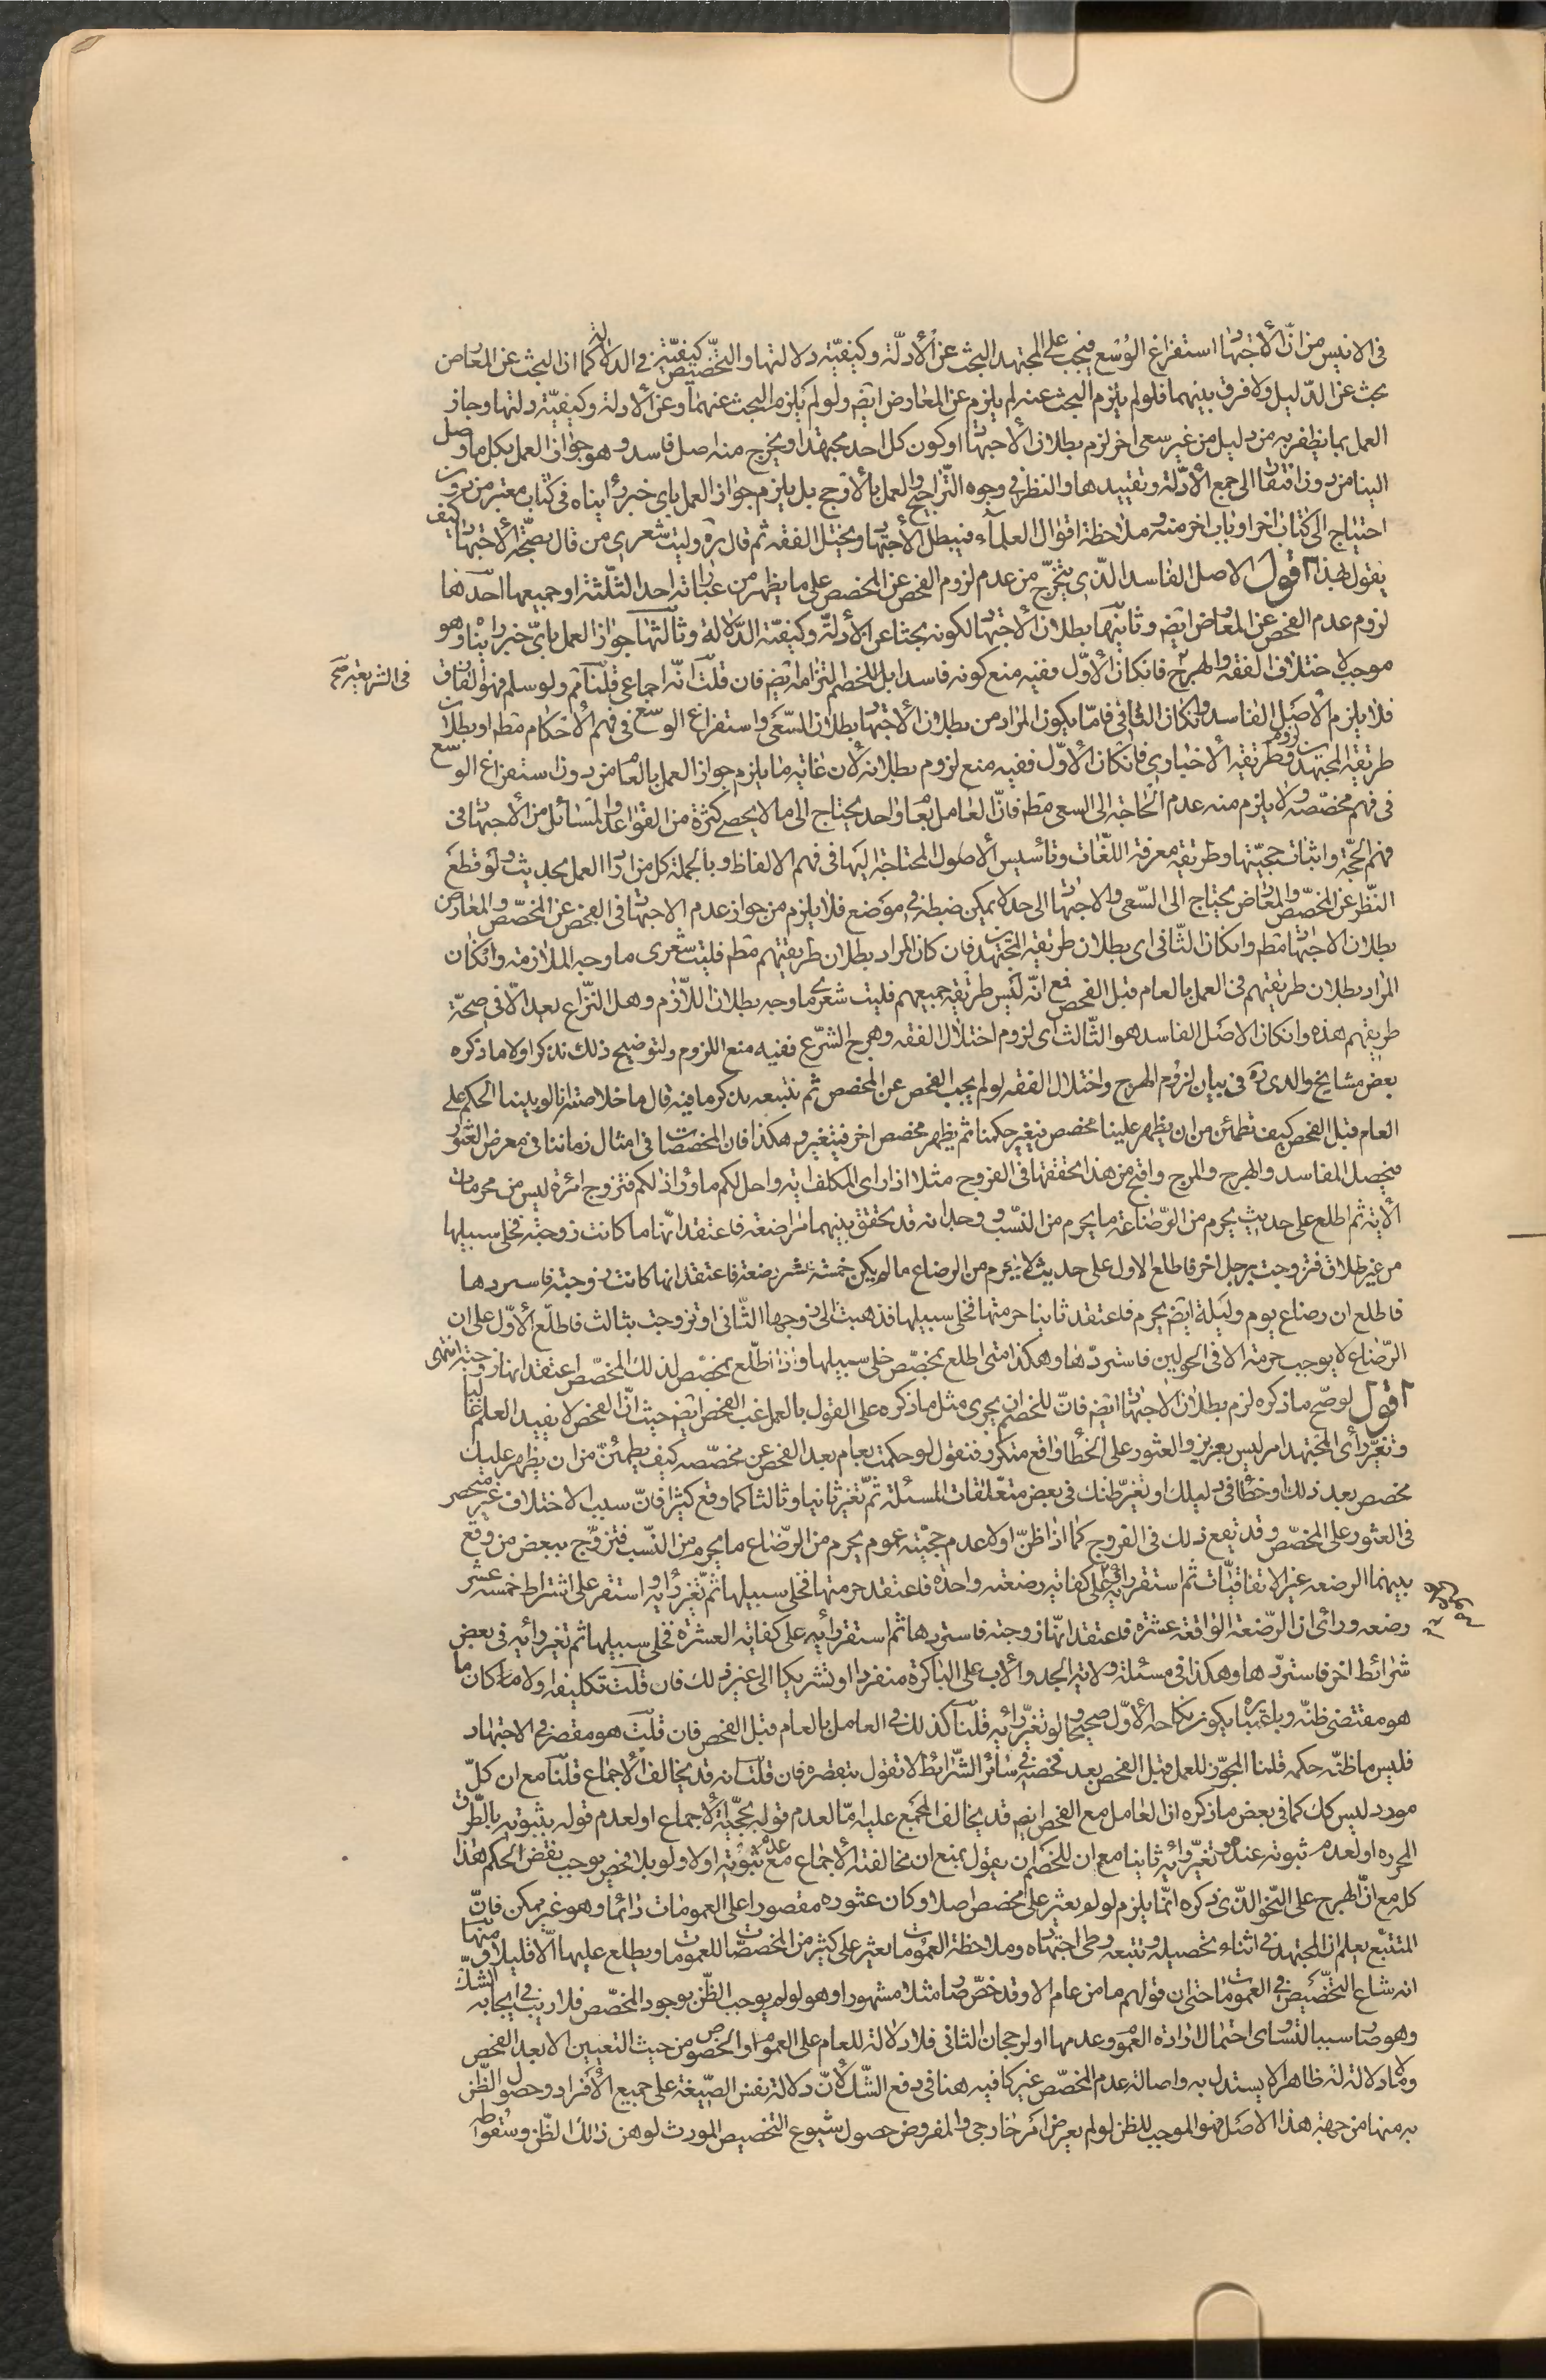 فى الانيس من انّ الأجتهاد استفراغ الوُسْع فيجب على المجتهد البحث عن الأدلّة وكيفيّة دلالتها والتخصيص كيفيّة فى الدلالة كما ان البحث عن المعارض
بحث عن الدّليل ولا فرق بينهما فلو لم يلزم البحث عنه لم يلزم عن المعارض ايضً ولو لم يلزم البحث عنهما وعن الأدلة وكيفيّة دلتها وجاز
العمل بما يظفر به من دليل من غير سعى اخر لزم بطلان الأجتهاد او كون كل احد مجتهدا ويخرج منه اصل فاسد وهو جواز العمل بكل ما وصل
الينا من دون افتقار الى جمع الأدّلة وتقييدها والنظر فى وجوه التّراجيح والعمل بالأرجح بل يلزم جواز العمل باى خبر رأيناه فى كتاب معتبر من دون
احتياج الى كتاب اخر او باب اخر منه وملاحظة اقوال العلمآء فيبطل الأجتهاد ويختل الفقه ثم قال ره وليت شعرى من قال بصحّة الأجتهاد كيف
يقول بهذا اقول الاصل الفاسد الّذى يتخرّج من عدم لزوم الفحص عن المخصص على ما يظهر من عباراته احد الثلّثة او جميعها احدها
لزوم عدم الفحص عن المعارض ايضً وثانيها بطلان الأجتهاد لكونه بحثا عن الأدلّة وكيفيّة الدّلالة وثالثها جواز العمل باىّ خبر رأيناه وهو
موجب لاختلاف الفقه والهرج فان كان الأوّل ففيه منع كونه فاسدا بل للخصم التزامه ايضً فان قلت انّه اجماعى قلنا ثم ولو سلم فهو اتفاق
فى الشريعة صح
فلا يلزم الأصل الفاسد وان كان الثانى فامّا يكون المراد من بطلان الأجتهاد بطلان السّعى واستفراغ الوسع فى فهم الأحكام مطم او بطلان
طريقة المجتهدين ولزوم طريقة الأخبارى فان كان الأوّل ففيه منع لزوم بطلانه لأن غاية ما يلزم جواز العمل بالعام من دون استفراغ الوسع
فى فهم مخصّصه ولا يلزم منه عدم الحاجة الى السعى مطم فانّ العامل بعام واحد يحتاج الى ما لا يحصى كثرة من القواعد والمسائل من الأجتهاد فى
فهم الحجّة واثبات حجيّتها وطريقة معرفة اللّغات وتأسيس الأصول المحتاجة اليها فى فهم الالفاظ وبالجملة كل من اراد العمل بحديث ولو قطع
النّظر عن المخصّص والمعارض يحتاج الى السّعى والاجتهاد الى حد لا يمكن ضبطه فى موضع فلا يلزم من جواز عدم الاجتهاد فى الفحص عن المخصّص والمعارض
بطلان الاجتهاد مطم وان كان الثّانى اى بطلان طريقة المجتهدين فان كان المراد بطلان طريقتهم مطم فليت شعرى ما وجه الملازمة وان كان
المراد بطلان طريقتهم فى العمل بالعام قبل الفحص فمع انّه ليس طريقة جميعهم فليت شعرى ما وجه بطلان اللّازم وهل النّزاع بعد الّا فى صحّة
طريقتهم هذه وان كان الاصل الفاسد هو الثّالث اى لزوم اختلال الفقه وهرج الشرّع ففيه منع اللزوم ولتوضيح ذلك نذكر اولا ما ذكره
بعض مشايخ والدى ره فى بيان لزوم الهرج واختلال الفقه لو لم يجب الفحص عن المخصص ثم نتبعه بذكر ما فيه قال ما خلاصته انا لو بنينا الحكم على
العام قبل الفحص كيف نطمئن من ان يظهر علينا مخصص فيغير حكمنا ثم يظهر مخصص اخر فيتغير وهكذا فان المخصصات فى امثال زماننا فى معرض العثور
فيحصل المفاسد والهرج والمرج واقبح من هذا تحققها فى الفروج مثلا اذا راى المكلف اية واحل لكم ما وراء ذلكم فتزوج امرئة ليس من محرمات
الأية ثم اطلع على حديث يحرم من الرّضاعة ما يحرم من النسّب ووجد انه قد تحقق بينهما مراضعة فاعتقد انّها ما كانت زوجته فخلى سبيلها
من غير طلاق فتزوجت برجل اخر فاطلع الاول على حديث لا يحرم من الرضاع ما لم يكن خمسة عشر رضعة فاعتقد انها كانت زوجته فاستردها
فاطلع ان رضاع يوم وليلة ايضً يحرم فاعتقد ثانيا حرمتها فخلى سبيلها فذهبت الى زوجها الثّانى او تزوجت بثالث فاطلّع الأوّل على ان
الرّضاع لا يوجب حرمة الا فى الحولين فاستردّها وهكذا متى اطلع بمخصّص خلى سبيلها واذا اطّلع بمخصّص لذلك المخصّص اعتقد انها زوجته انتهى
اقول لو صحّ ما ذكره لزم بطلان الاجتهاد ايضً فانّ للخصم ان يجرى مثل ما ذكره على القول بالعمل غب الفحص ايضً حيث انّ الفحص لا يفيد العلم غالبا
وتغيّر رأى المجتهد امر ليس بعزيز والعثور على الخطأ واقع متكرر فنقول لو حكمت بعام بعد الفحص عن مخصّصه كيف يطمئنّ من ان يظهر عليك
مخصص بعد ذلك او خطأ فى دليلك او تغيّر ظنك فى بعض متعلقات المسئلة ثمّ تغير ثانيا وثالثا كما وقع كثيرا فانّ سبب الاختلاف غير منحصر
فى العثور على المخصّص وقد يقع ذلك فى الفروج كما اذا ظنّ اولا عدم حجيّة عموم يحرم من الرّضاع ما يحرم من النّسب فتزوّج ببعض من وقع
بينهما الرضعه غير الاتفاقيّات ثم استقر رأيه على كفاية رضعة واحدة فاعتقد حرمتها فخلى سبيلها ثمّ تغيّر رأيه واستقر على اشتراط خمسة عشر
رضعه ورأى ان الرّضعة الواقعة عشرة فاعتقد انّها زوجته فاستردها ثم استقر رأيه على كفاية العشرة فخلى سبيلها ثم تغير رأيه فى بعض
شرائط اخر فاستردّها وهكذا فى مسئلة ولاية الجد والأب على الباكرة منفردا او تشريكا الى غير ذلك فان قلت تكليفه اولا ما كان
هو مقتضى ظنّه وباعتباره يكون نكاحه الأوّل صحيحا ولو تغيّر رأيه قلنا كذلك فى العامل بالعام قبل الفحص فان قلت هو مقصر فى الاجتهاد
فليس ما ظنّه حكمه قلنا المجوّز للعمل قبل الفحص بعد فحصه فى سائر الشّرايط لا تقول بتقصيره فان قلت انه قد يخالف الأجماع قلنا مع ان كلّ
مورد ليس كك كما فى بعض ما ذكره ان العامل مع الفحص ايضً قد يخالف المجمع عليه امّا لعدم قوله بحجيّة الأجماع او لعدم قوله بثبوته بالطّرق
المحرره او لعدم ثبوته عنده وتغيّر رأيه ثانيا مع ان للخصم ان يقول بمنع ان مخالفته الأجماع مع عدم ثبوته اولا ولو بلا فحص يوجب نقض الحكم هذا
كله مع انّ الهرج على النّحو الّذى ذكره انّما يلزم لو لم يعثر على مخصص اصلا وكان عثوره مقصورا على العمومات دائما وهو غير ممكن فانّ
المتتبّع يعلم ان المجتهد فى اثناء تحصيله وتتبعه وطى اجتهاده وملاحظة العمومات يعثر على كثير من المخصصات للعمومات ويطلع عليها الّا قليلا ومنها
انه شاع التّخصيص فى العمومات حتى ان قولهم ما من عام الا وقد خصّ صار مثلا مشهورا وهو لو لم يوجب الظّن بوجود المخصّص فلا ريب فى ايجابه الشكّ
وهو صار سببا لتساوى احتمال ارادة العموم وعدمها او لرجحان الثانى فلا دلالة للعام على العموم او الخصوص من حيث التعيين الا بعد الفحص
وما لا دلالة له ظاهرا لا يستدل به واصالة عدم المخصّص غير كافيه هنا فى دفع الشّك لأنّ دلالة نفس الصّيغة على جميع الأفراد وحصول الظّن
به منها من جهة هذا الاصل فهو الموجب للظن لو لم يعرض امر خارجى والمفروض حصول شيوع التخصيص المورث لوهن ذلك الظّن وسقوطه